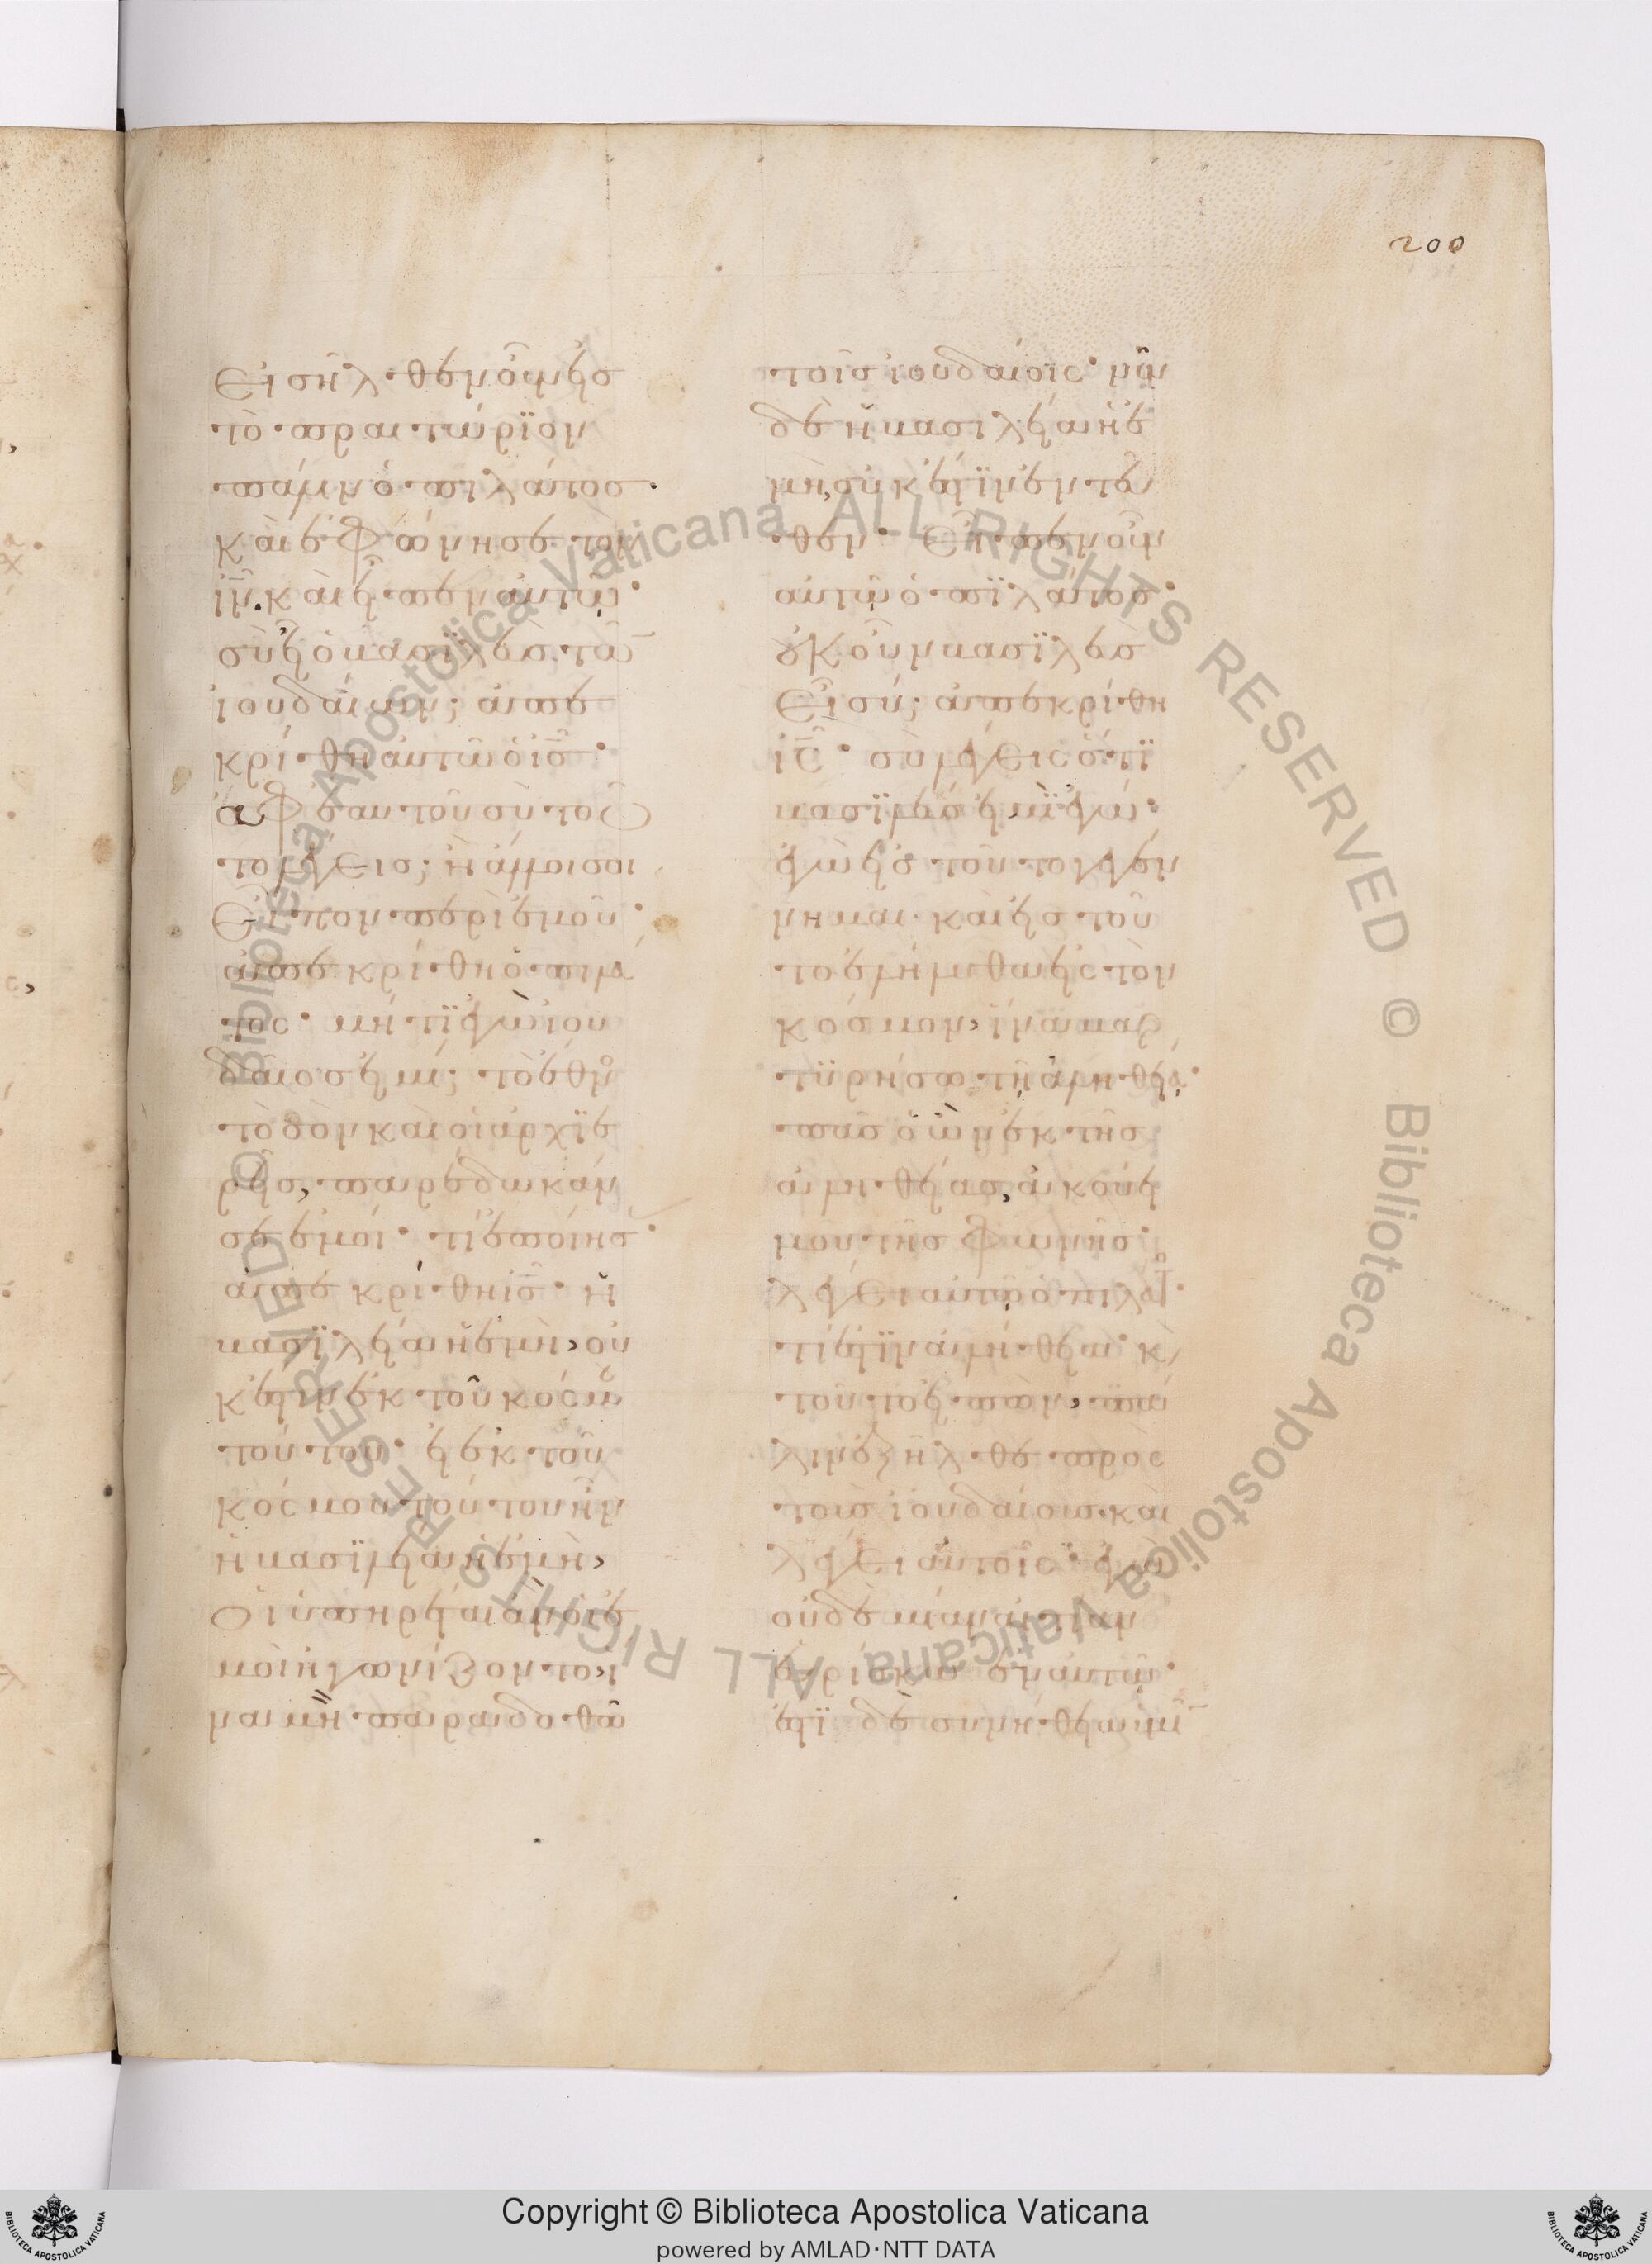 Εἰσῆλθεν οὖν εἰς
τὸ πραιτώρϊον
πάλιν ὁ πιλάτος.
Καὶ ἐφώνησε τὸν
ἰν̅. καὶ εἶπεν αὐτῷ.
σὺ εἶ ὁ βασϊλεὺς τῶ̅
ἰουδαίων; ἀπε
κρίθη αὐτῶ ὁ ἰς̅.
ἀφεαυτοῦ σὺ τοῦ
το λέγεις; ἢ ἄλλοι σοι
εἶπον περὶ ἐμοῦ.
ἀπεκρίθη ὁ πιλά
τος. μή τϊ ἐγὼ ἰου
δαῖος εἰμί; τὸ ἔθνο
τὸ σὸν καὶ οἱ ἀρχϊε
ρεῖς, παρέδωκάν
σε ἐμοί. τί ἐποίησ.
ἀπεκρίθη ἰς̅. ἡ
βασϊλεία ἡ ἐμὴ, οὐ
κ ἔστιν ἐκ τοῦ κόσμου
τούτου. εἰ ἐκ τοῦ
κόσμου τούτου ἦν
ἡ βασϊλεία ἡ ἐμὴ,
οἱ ὑπηρέται ἂν οἱ ἐ
μοὶ ἠγωνίζοντο, ἵ
να μὴ παραδοθῶ
200
τοῖς ἰουδαίοις. νῦν
δὲ ἡ βασιλεία ἡ ἐ
μὴ, οὐκ ἔστϊν ἐντεῦ
θεν. Εἶπεν οὖν
αὐτῷ ὁ πϊλάτος.
οὐκοῦν βασϊλεὺς
Εἶ σύ; ἀπεκρίθη
ἰς̅. σὺ λέγεις ὅτϊ
βασϊλεύς εἰμϊ ἐγώ.
ἐγὼ εἰς τοῦτο γεγέν
νημαι. καὶ εἰς τοῦ
το ἐλήλυθα εἰς τὸν
κόσμον, ἵνα μαρ
τϋρήσω τῇ ἀληθείᾳ.
πᾶς ὁ ὢν ἐκ τῆς
ἀληθείας, ἀκούει
μου τῆς φωνῆς.
λέγει αὐτῷ ὁ πιλάτο.
τί ἐστϊν ἀλήθεια; κ̀
τοῦτο εἰπὼν, πά
λιν ἐξῆλθε πρὸς
τοὺς ἰουδαίους. καὶ
λέγει αὐτοῖς. ἐγὼ
οὐδεμίαν αἰτίαν
εὑρίσκω ἐν αὐτῷ.
ἔστϊ δὲ συνήθεια ὑμῖ̅
Copyright © Biblioteca Apostolica Vaticana
powered by AMLAD·NTT DATA
Biblioteca Apostolica Vaticana ALL RIGHTS RESERVED © Biblioteca Apostolica Vaticana ALL RIGHTS RESERVED ©
BIBLIOTECA APOSTOLICA VATICANA
BIBLIOTECA APOSTOLICA VATICANA